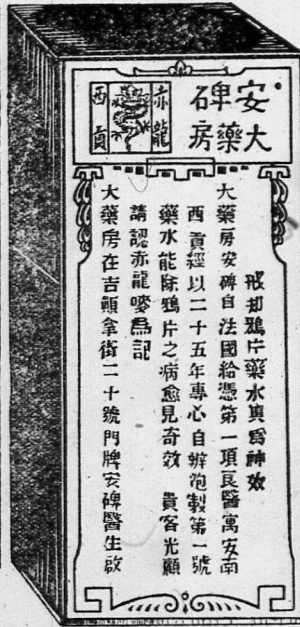 安碑
大藥房
赤龍
西貢
戒却鴉片藥水爲神效
大藥房安碑自法國給憑第一項良醫寓安南
西貢經以二十五年專心自辦泡製第一號
藥水能除鴉片之病愈見奇效　貴客光顧
請認赤龍嘜爲記
大藥房在吉顛拿街二十號門牌安碑醫生啟